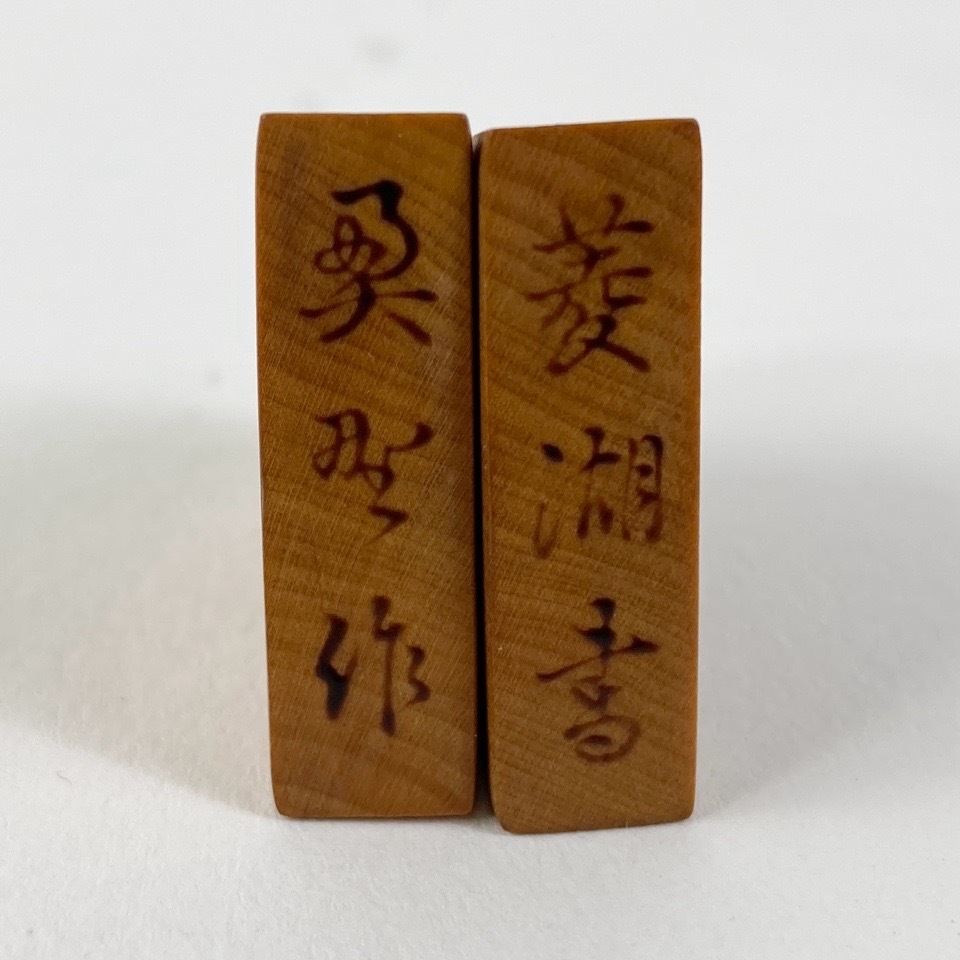 菱湖書
奥野作